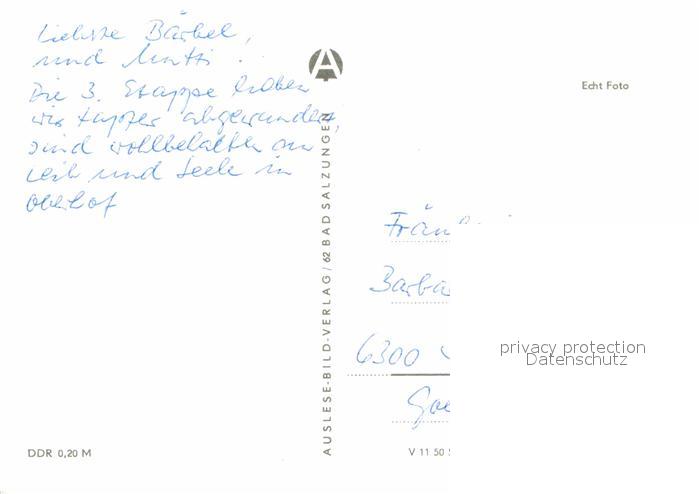 Liebste Bärbel,
und Mutti.
Die 3. Etappe haben
wir tapfer abgewandert,
sind wohlbehalten an
Leib und Seele in
Oberhof
A
AUSLESE-BILD-VERLAG / 62 BAD SALZUNGEN
Echt Foto
Fräul
Barba
6300
Goe
privacy protection
Datenschutz
DDR 0,20 M
V 11 50